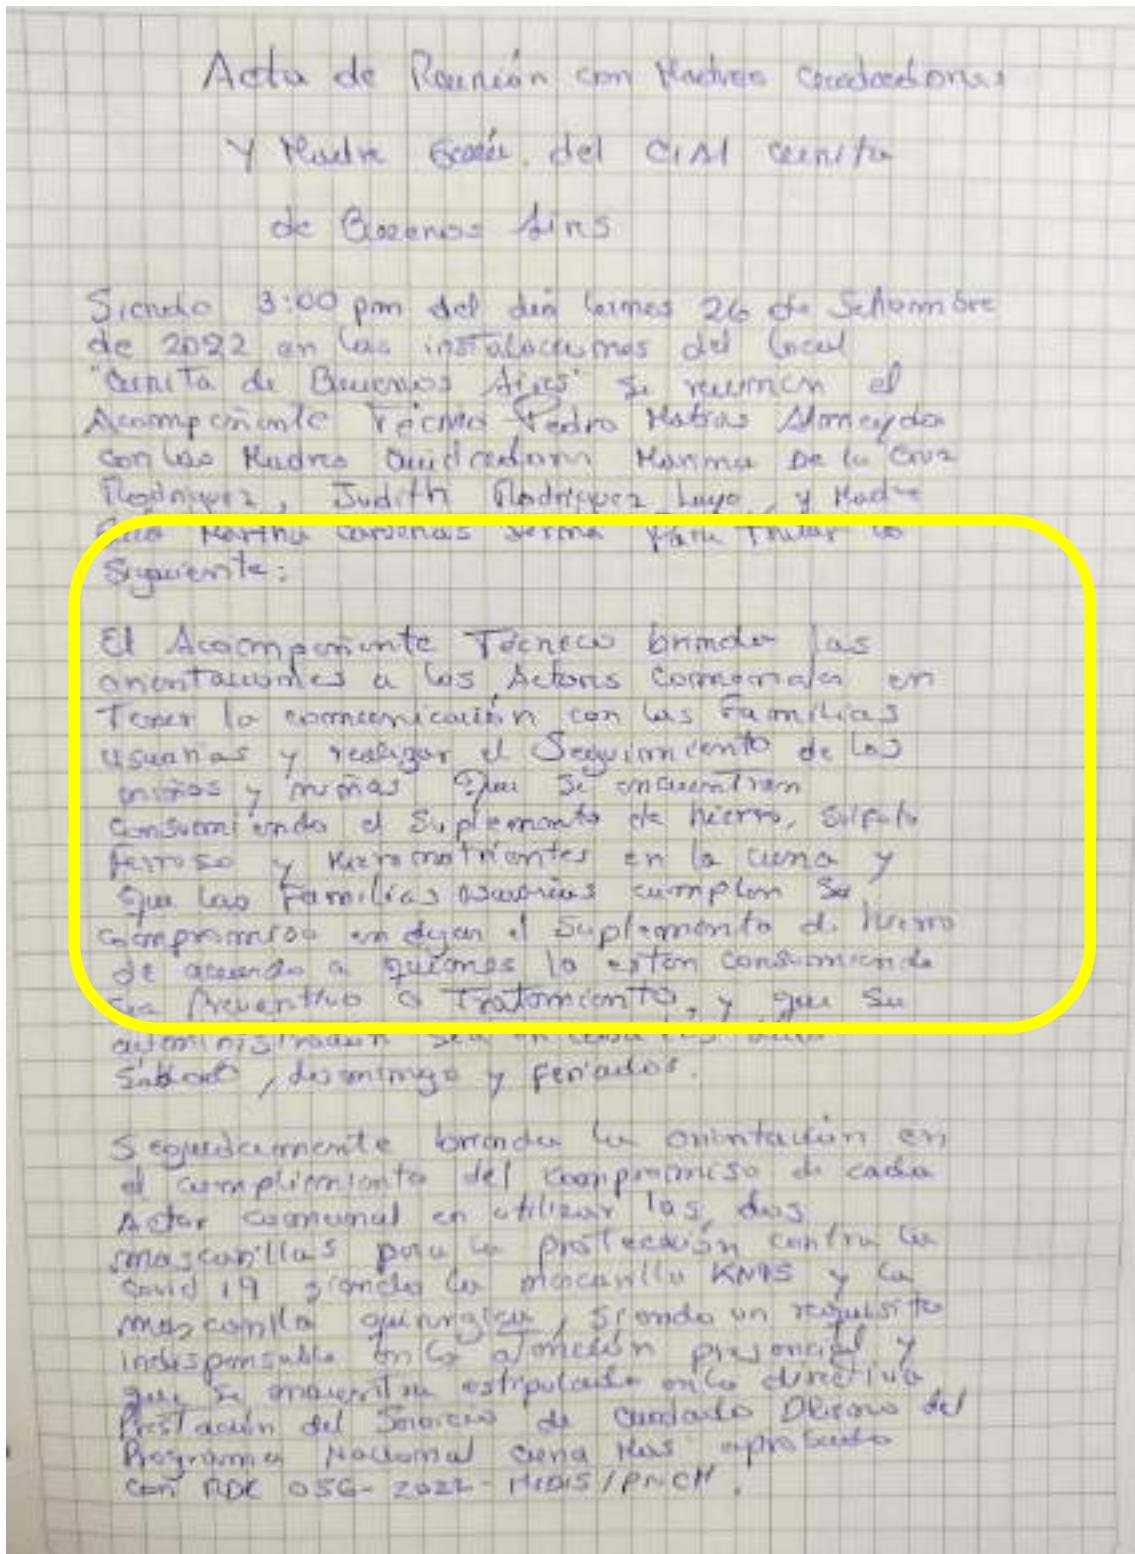 Acta de Reunión con Madres Cuidadoras
Y Madre Guía del CIAI Cunita
de Buenos Aires
Siendo 3:00 pm del día lunes 26 de Setiembre
de 2022 en las instalaciones del local
"Cunita de Buenos Aires" se reunen el
Acompañante Técnico Pedro Matias Almeyda
con las Madres Cuidadora Marina De la Cruz
Rodriguez, Judith Rodriguez Luyo, y Madre
Guía Martha Cardenas Serma Para Tratar lo
Siguiente:
El Acompañante Técnico brinda las
orientaciones a los Actores Comunales en
Tener la comunicación con las Familias
usuarias y realizar el Seguimiento de los
niños y niñas Que Se encuentran
Consumiendo el Suplemento de hierro, Sulfato
ferroso y Micronutrientes en la cuna y
Que las Familias usuarias cumplan Su
compromiso en dejar el Suplemento de hierro
de acuerdo a quienes lo estan consumiendo
sea Preventivo o Tratamiento, y que Su
administración sea en casa los días
Sábado, domingo y feriados.
Seguidamente brinda la orientación en
el cumplimiento del compromiso de cada
Actor comunal en utilizar las dos
mascarillas para la protección contra la
Covid 19 siendo la mascarilla KN95 y la
mascarilla quirurgica, Siendo un requisito
indispensable en la atención presencial y
que se encuentra estipulado en la directiva
Prestación del Servicio de Cuidado Diurno del
Programa Nacional Cuna Mas aprobado
con RDE 056-2022-MIDIS/PNCM.